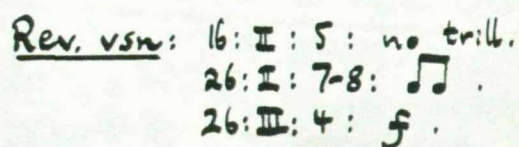 Rev. vsn: 16: II: 5: no trill.
26: I: 7-8: ♫.
26: III: 4: f.